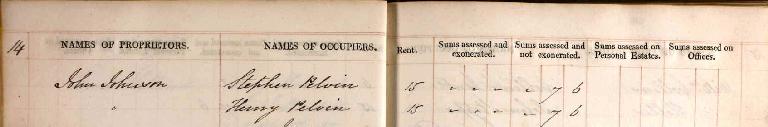 14 NAMES OF PROPRIETORS. NAMES OF OCCUPIERS. Rent. Sums assessed and exonerated. Sums assessed and not exonerated. Sums assessed on Personal Estates. Sums assessed on Offices.
John Johnson Stephen Pelvin 15 " " " " 7 6
" Henry Pelvin 15 " " " " 7 6